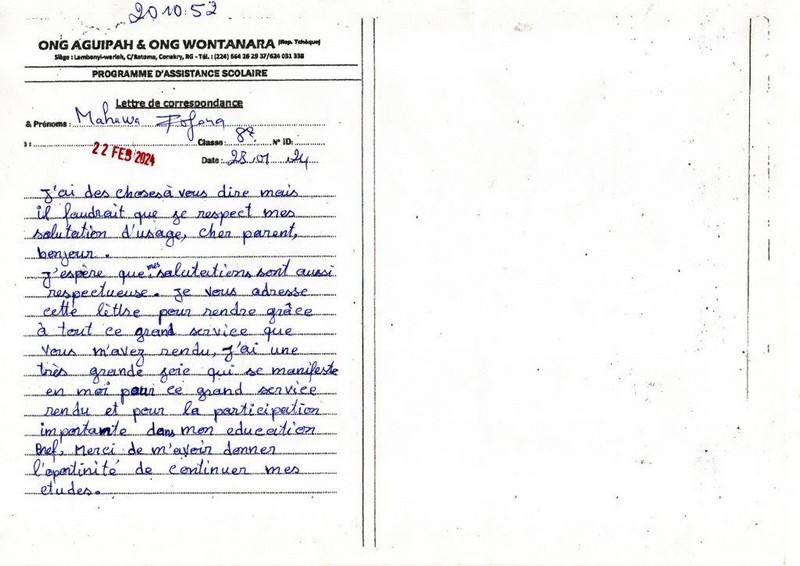 201052
ONG AGUIPAH & ONG WONTANARA (Rep. Tchèque)
Siège : Lambanyi-wariah, C/Ratoma, Conakry, RG - Tél. : (224) 664 26 29 37/624 031 338
PROGRAMME D'ASSISTANCE SCOLAIRE
Lettre de correspondance
& Prénoms : Mahawa Fofana
: Classe : 8e N° ID:
22 FEB 2024
Date : 28.01 24
J'ai des choses à vous dire mais
il faudrait que je respect mes
salutation d'usage, cher parent,
bonjour.
J'espère que mes salutations sont aussi
respectueuse. Je vous adresse
cette lèttre pour rendre grâce
à tout ce grand service que
vous m'avez rendu, J'ai une
très grande joie qui se manifeste
en moi pour ce grand service
rendu et pour la participation
importante dans mon education
Bref, Merci de m'avoir donner
l'oportinité de continuer mes
etudes.